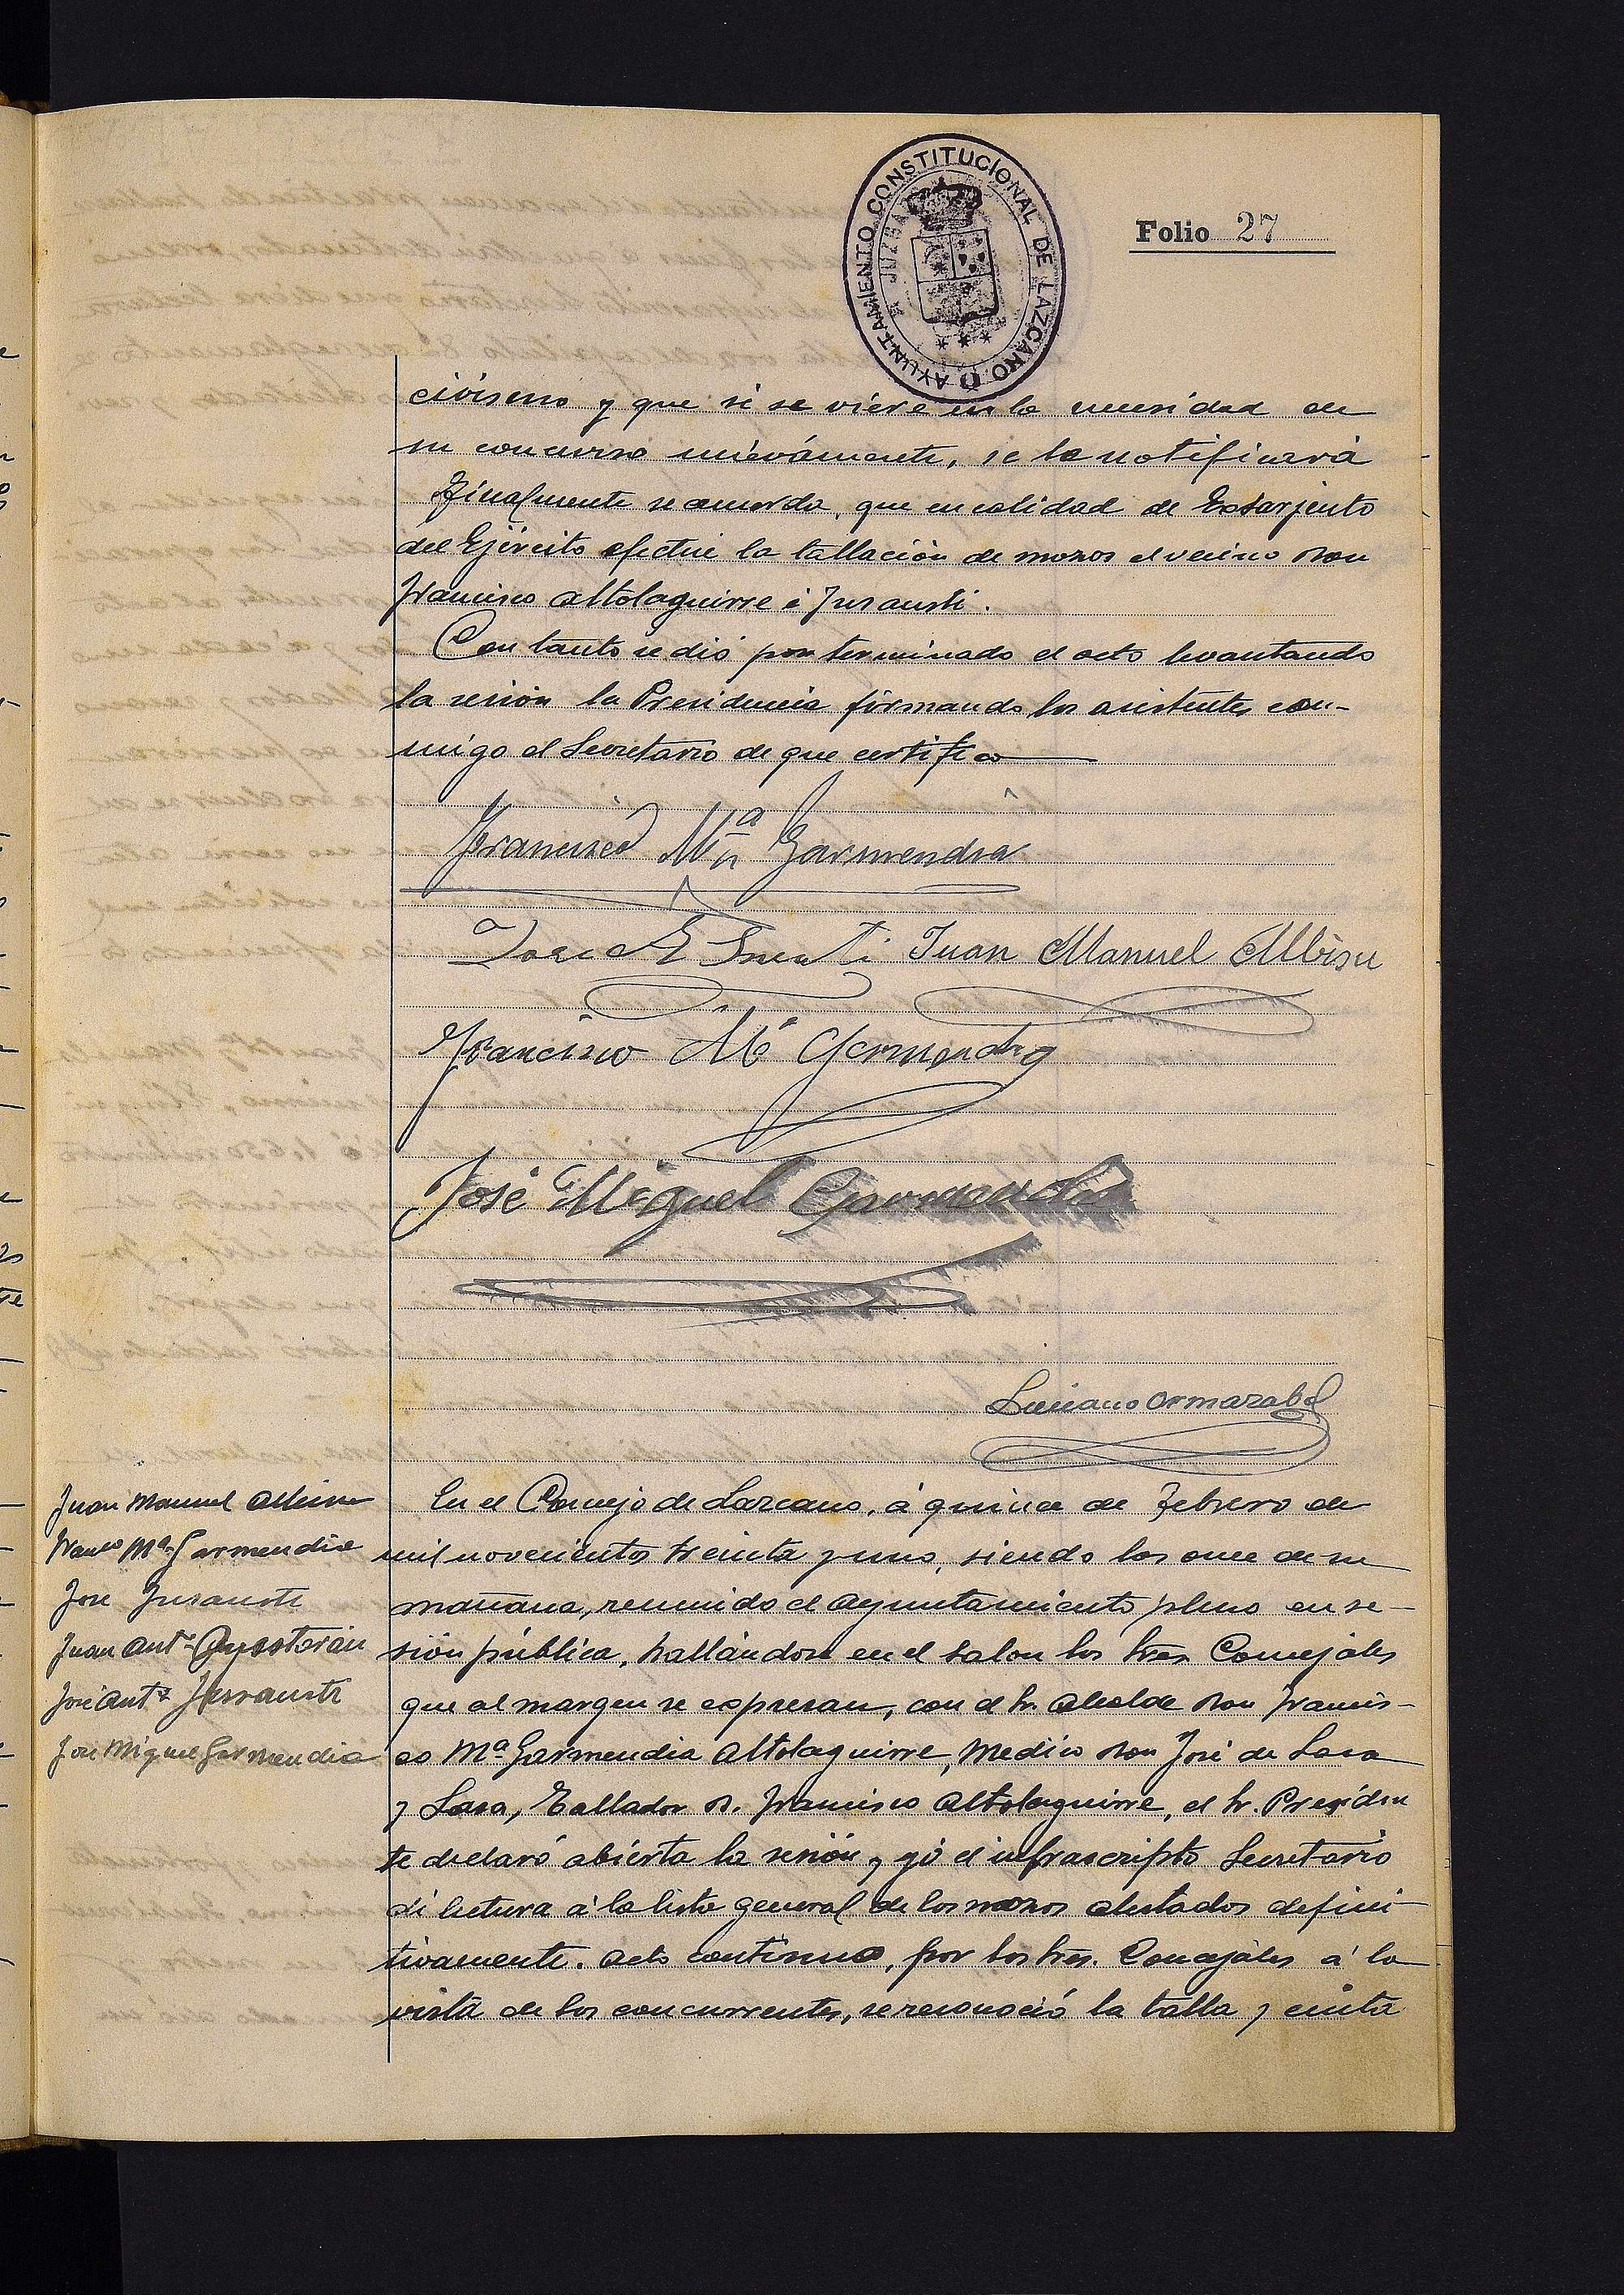 AYUNTAMIENTO CONSTITUCIONAL DE LAZCANO
Folio 27
civismo y que si se viere en la necesidad de
su concurso nuevamente, se le notificará
Finalmente se acuerda, que en calidad de Exsarjento
del Ejército efectúe la tallación de mozos el vecino Don
Francisco Altolaguirre é Insausti.
Con tanto se dió por terminado el acto levantando
la sesión la Presidencia firmando los asistentes con-
migo el Secretario de que certifico
Francisco Mª Garmendia
José A Insausti Juan Manuel Albisu
Francisco Mª Garmendia
José Miguel Garmendia
Luciano Ormazabal
Juan Manuel Albisu
Franco Mª Garmendia
José Insausti
Juan Antº Ayestarán
José Antº Insausti
José Miguel Garmendia
En el Concejo de Lazcano, á quince de Febrero de
mil novecientos treinta y uno, siendo las once de su
mañana, reunido el Ayuntamiento pleno en se-
sión pública, hallándose en el salon los Sres Concejales
que al margen se expresan, con el Sr. Alcalde Don Francis-
co Mª Garmendia Altolaguirre, Medico Don José de Lasa
y Lasa, Tallador D. Francisco Altolaguirre, el Sr. Presiden
te declaró abierta la sesión, y yó el infrascripto Secretario
dí lectura á la lista general de los mozos alistados defini-
tivamente. Acto continuo, por los Sres. Concejales á la
vista de los concurrentes, se reconoció la talla y cinta